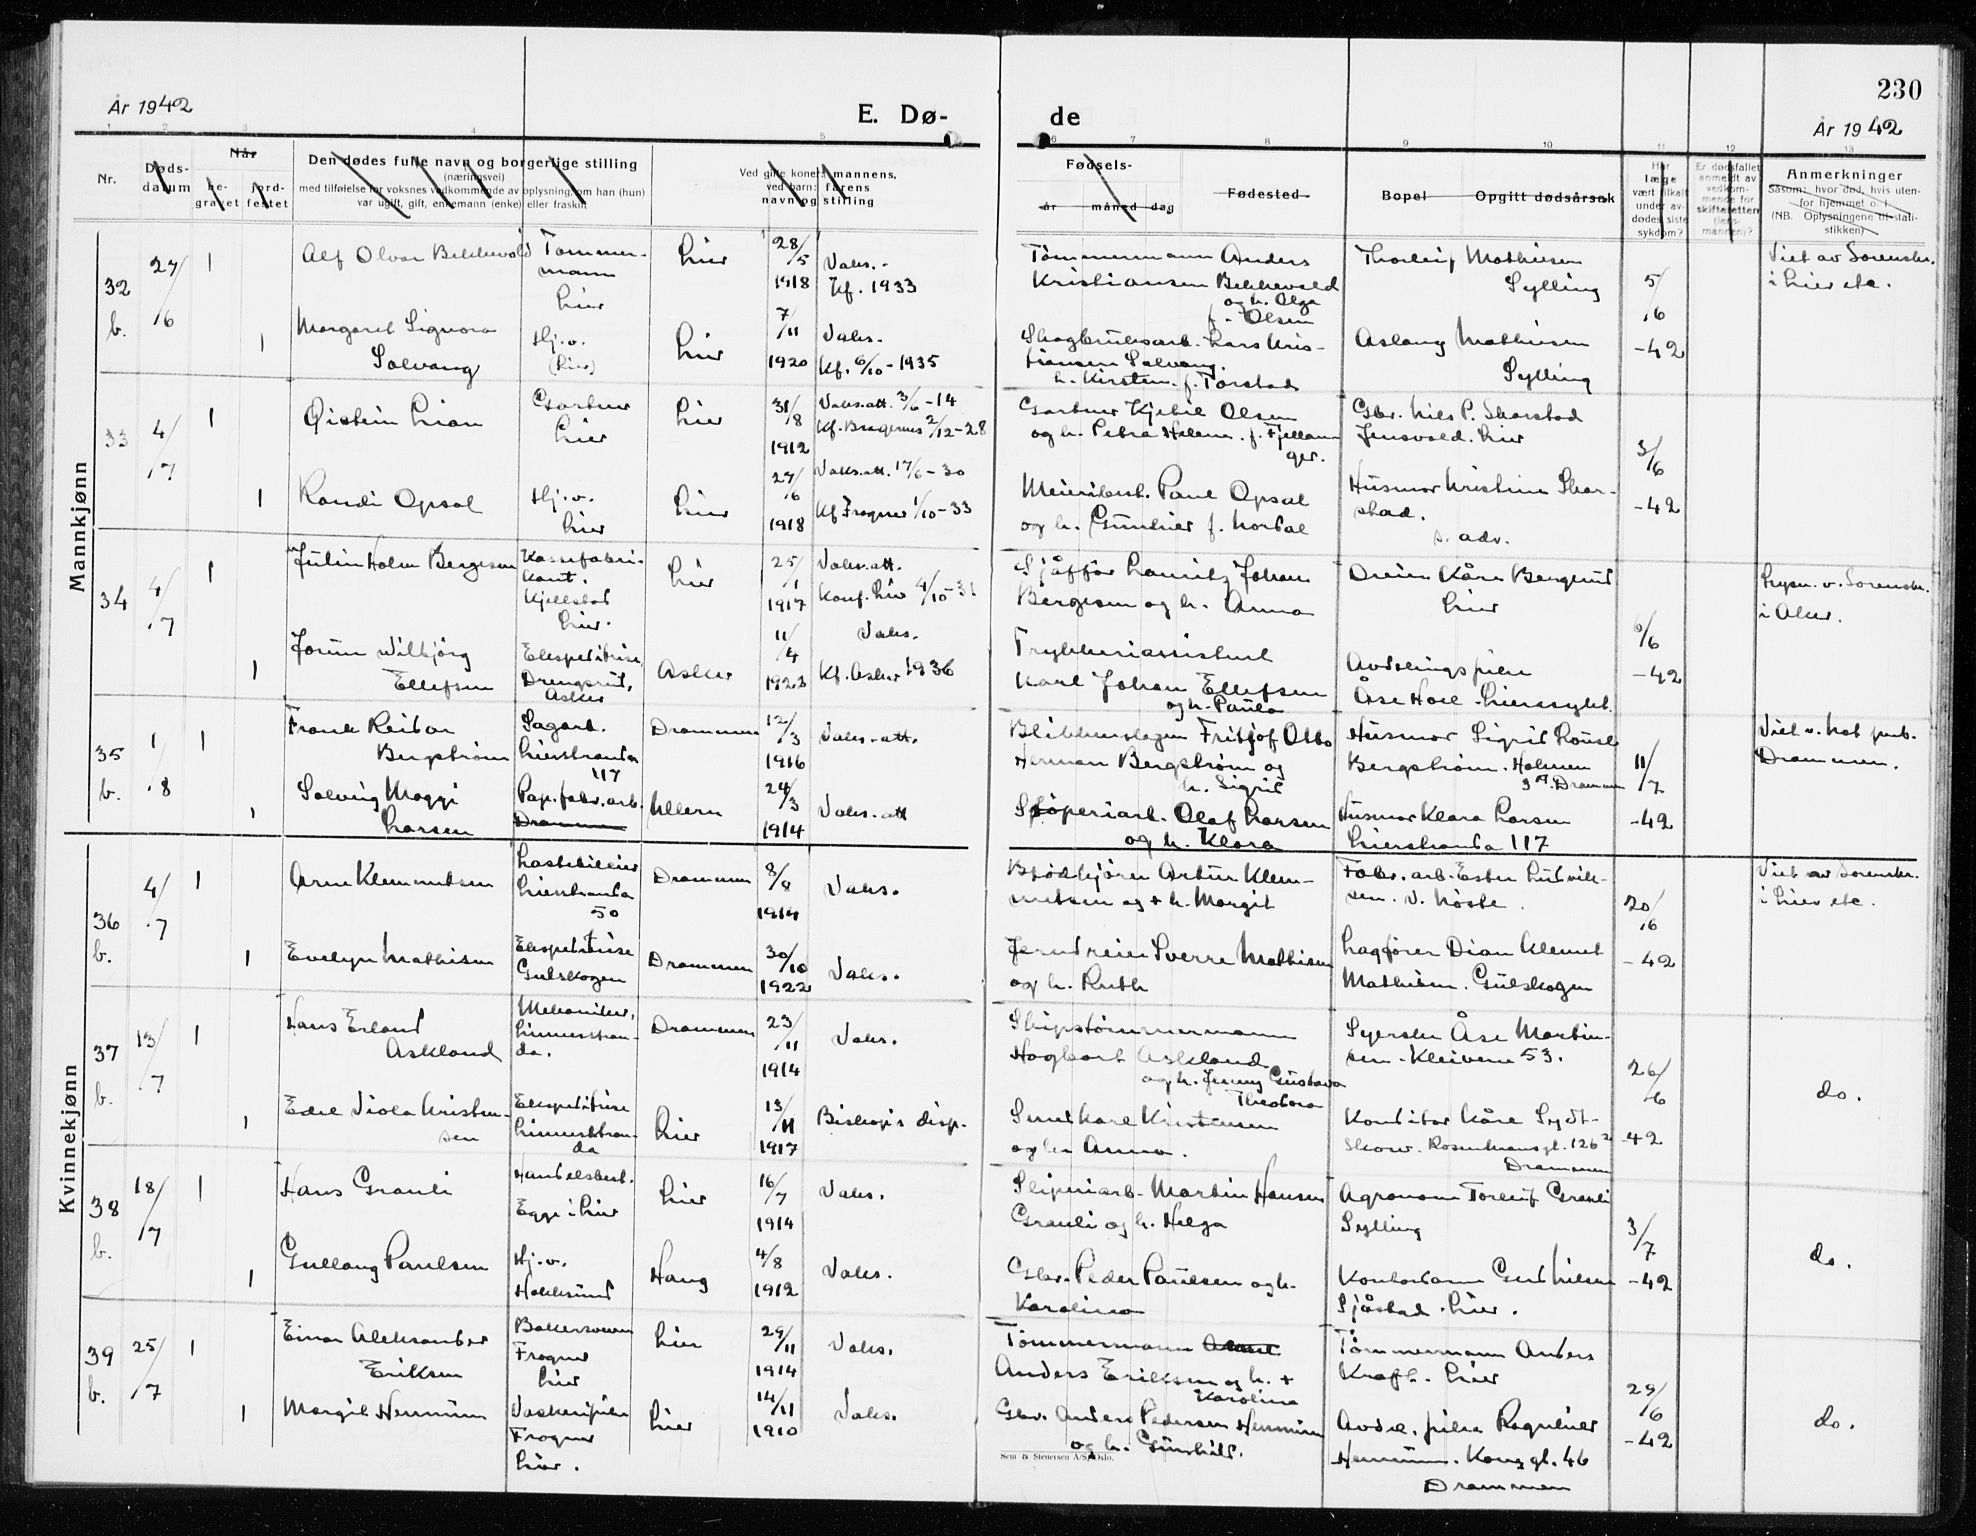 230
År 1942
E. Dø-
de
År 1942
1 2 3 4 5
6 7 8 9 10 11 12 13
Nr.
Døds-
datum
Når
be-
gravet
jord-
festet
Den dødes fulle navn og borgerlige stilling
(næringsvei)
med tilføielse for voksnes vedkommende av oplysning om han (hun)
var ugift, gift, enkemann (enke) eller fraskilt
Ved gifte koner: mannens,
ved barn: farens
navn og stilling
Fødsels-
år måned dag
Fødested
Bopel
Opgitt dødsårsak
Har
læge
vært tilkalt
under av-
dødes siste
sykdom?
Er dødsfallet
anmeldt av
vedkom-
mende for
skifteretten
(lens-
mannen)?
Anmerkninger
Såsom: hvor død, hvis uten-
for hjemmet o. l.
(NB. Oplysningene til stati-
stikken)
Mannkjønn
32
b.
27/6
1
Alf Olvar Bekkevold
Tømmer-
mann
Lier
Lier
28/5
1918
Vaks.
Kf. 1933
Tømmermann Anders
Kristiansen Bekkevold
og h. Olga
f. Olsen
Thorleif Mathisen
Sylling
5/6
-42
Viet av Sorenskr.
i Lier etc.
1
Margaret Signora
Solvang
Hj.v.
(Lier)
Lier
7/11
1920
Vaks.
Kf. 6/10-1935
Lars Kris-
tiansen Solvang.
h. Kirsten f. Torstad
Aslaug Mathisen
Sylling
33
4/7
1
Øistein Lian
Gartner
Lier
Lier
31/8
1912
Vaks.att. 3/6-14
Kf. Bragernes 2/12-28
Gartner Kjetil Olsen
og h. Petra Helene f. Fjellanger.
Gbr. Nils P. Skarstad
Jensvold. Lier
3/6
-42
1
Randi Opsal
Hj.v.
Lier
Lier
27/6
1918
Vaks.att. 17/6-30
Kf Frogner 1/10-33
Meieribest. Paul Opsal
og h. Gunhild f. Nordal
Husmor Kristine Skar-
stad.
s. adr.
34
4/7
1
Julin Holm Bergesen
Kassefabri-
kant.
Kjellstad
Lier.
Lier
25/1
1917
Vaks.att.
Konf. Lier 4/10-31
Sjåfför Lauritz Johan
Bergesen og h. Anna
Dreier Kåre Bergrud
Lier
6/6
-42
Lysn. v. Sorenskr.
i Aker.
1
Jorun Vilbjörg
Ellefsen
Ekspeditrise,
Drengsrud,
Asker
Asker
11/4
1923
Vaks.
Kf. Asker 1936
Trykkeriassistent
Karl Johan Ellefsen
og h. Paula
Avdelingspike
Åse Hoel. Lier sykeh.
35
b.
1/8
1
Frank Reidar
Bergström
Sagarb.
Lierstranda
117
Drammen
12/3
1916
Vaks. att.
Blikkenslager Fritjof Otto
Herman Bergström og
h. Sigrid
Husmor Sigrid Louise
Bergström. Holmen
Drammen
11/7
-42
Viet v. Not publ.
Drammen.
1
Solveig Maggi
Larsen
Pap.fabr.arb.
Drammen
Ullern
24/3
1914
Vaks. att
Stöperiarb. Olaf Larsen
og h. Klara
Husmor Klara Larsen
Lierstranda 117
Kvinnekjønn
36
b.
4/7
1
Arne Klemmetsen
Lastebileier
Lierstranda
50
Drammen
8/8
1914
Vaks.
Blödkjörer Artur Klem-
metsen og + h. Margit
Fabr. arb. Ester Ludvik-
sen. N. Höste.
20/6
-42
Viet av Sorenskr.
i Lier etc.
1
Evelyn Mathisen
Ekspeditrise
Gulskogen
Drammen
30/10
1922
Vaks.
Jerndreier Sverre Mathisen
og h. Ruth
Lagförer Dian Klemet
Mathisen. Gulskogen
37
b.
13/7
1
Hans Erland
Askland
Mekaniker,
Linnesstran-
da.
Drammen
23/11
1914
Vaks.
Skipstömmermann
Hagbart Askland
og h. Jenny Gustava
Theodora
Syerske Åse Martin-
sen. Kleivene 53.
26/6
-42
do.
1
Edel Viola Kristen-
sen
Ekspeditrise
Linnesstran-
da
Lier
13/11
1917
Biskop's disp.
Smed Karl Kristensen
og h. Anna.
Konditor Kåre Sydt-
skow. Rosenkransgt. 126
Drammen
38
b.
18/7
1
Hans Granli
Handelsbest.
Egge i Lier
Lier
16/7
1914
Vaks.
Sliperiarb. Martin Hansen
Granli og h. Helga
Agronom Torleif Granli
Sylling
3/7
-42
do.
1
Gullaug Paulsen
Hj.v.
Hokksund
Haug
4/8
1912
Vaks.
Gbr. Peder Paulsen og h.
Karoline
Kontordame Gerd Nilsen
Sjåstad. Lier.
39
b.
25/7
1
Einar Aleksander
Eriksen
Bakersvenn
Frogner
Lier
Lier
29/11
1914
Vaks.
Tömmermann
Anders Eriksen og h. +
Karoline
Tömmermann Anders
Kraft. Lier
29/6
-42
do.
1
Margit Hennum
Vaskeripike
Frogner
Lier.
Lier
14/11
1910
Vaks.
Gbr. Anders Pedersen Hennum
og h. Gunhild.
Avdel. pike Ragnhild
Hennum. Kongsgt. 46
Drammen
Sem & Stenersen A/S, Oslo.